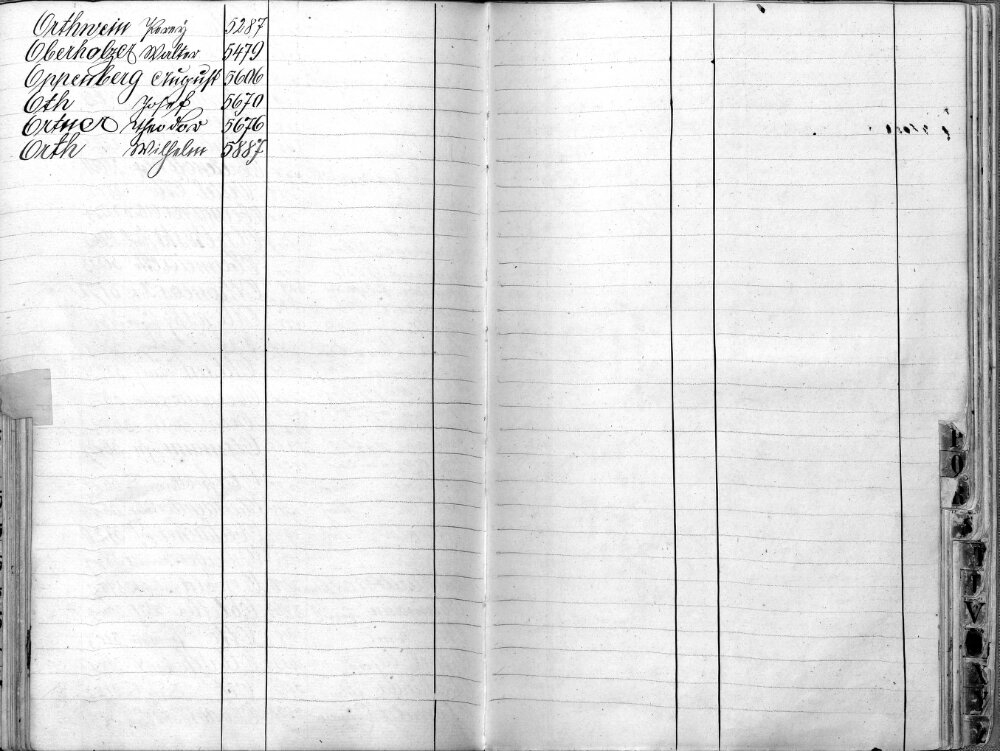 Orthwein Percy 5287
Oberholzer Walter 5479
Oppenberg August 5606
Oth Josef 5670
Ortner Theodor 5676
Orth Wilhelm 5887